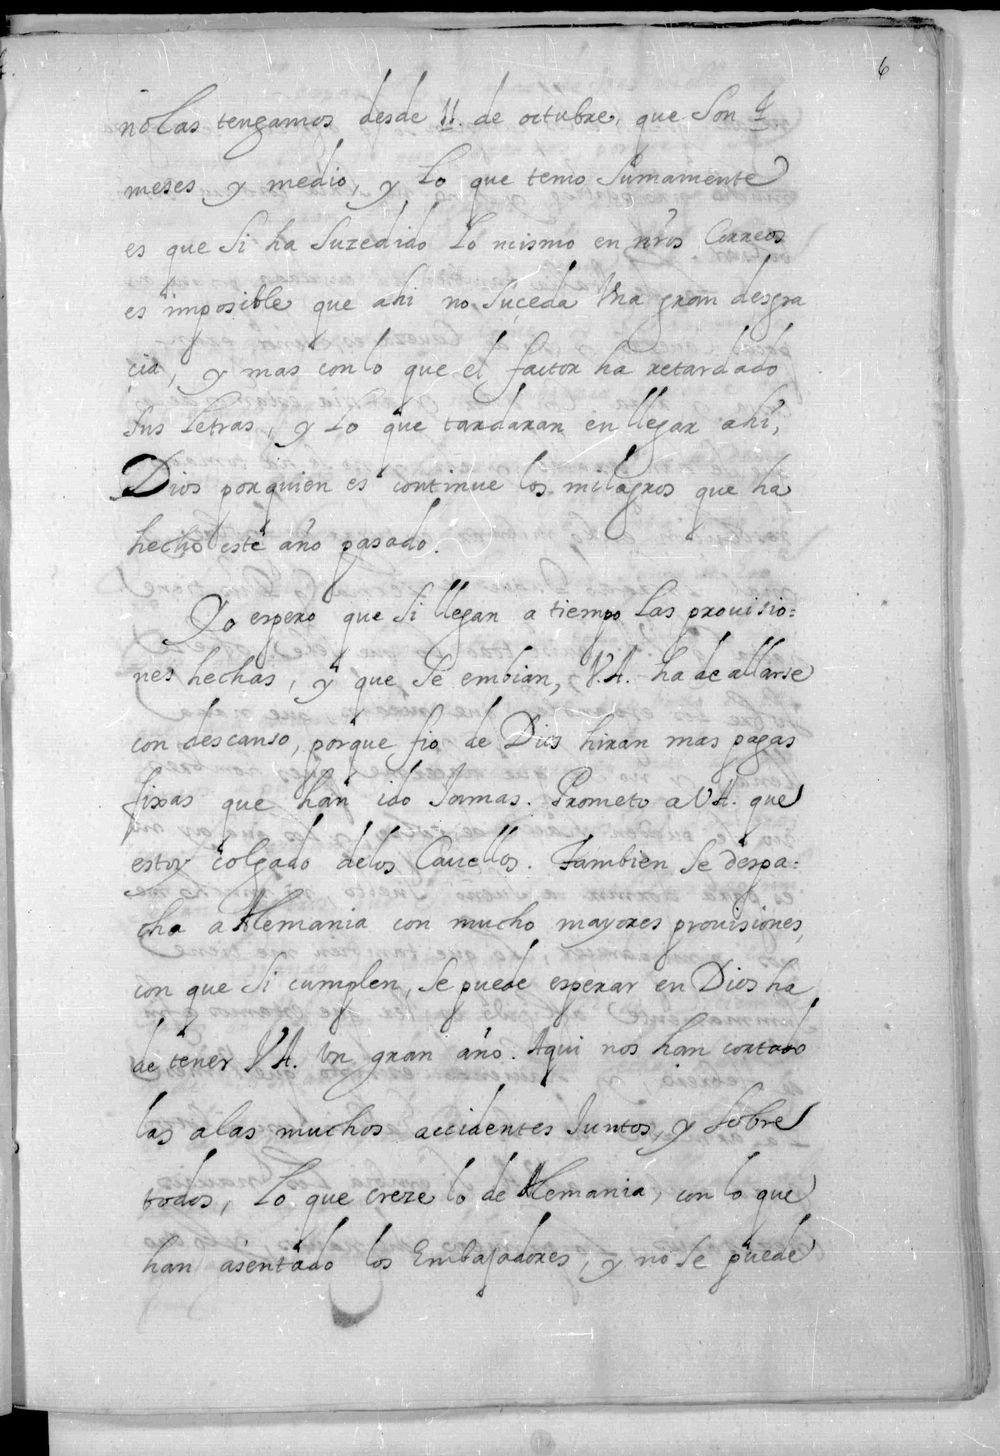 6
nolas tengamos desde 11. de octubre, que son 4
meses y medio, y lo que temo sumamente
es que si ha suzedido lo mismo en nr̃os Correos
es imposible que ahi no suçeda Vna gran desgra
cia, y mas con lo que el factor ha retardado
sus letras, y lo que tardaran en llegar ahi,
Dios por quien es continue los milagros que ha
hecho este año pasado.
Yo espero que si llegan a tiempo las prouisio=
nes hechas, y que se embian, V.A. ha de allarse
con descanso, porque fio de Dios hiran mas pagas
fixas que han ido Jamas. Prometo a V.A. que
estoy colgado delos Cauellos. Tambien se despa=
cha a Alemania con mucho mayores prouisiones,
con que si cumplen, se puede esperar en Dios ha
de tener V.A. Vn gran año. Aqui nos han cortado
las alas muchos accidentes Juntos, y sobre
todos, lo que creze lo de Alemania, con lo que
han asentado los Embajadores, y no se puede